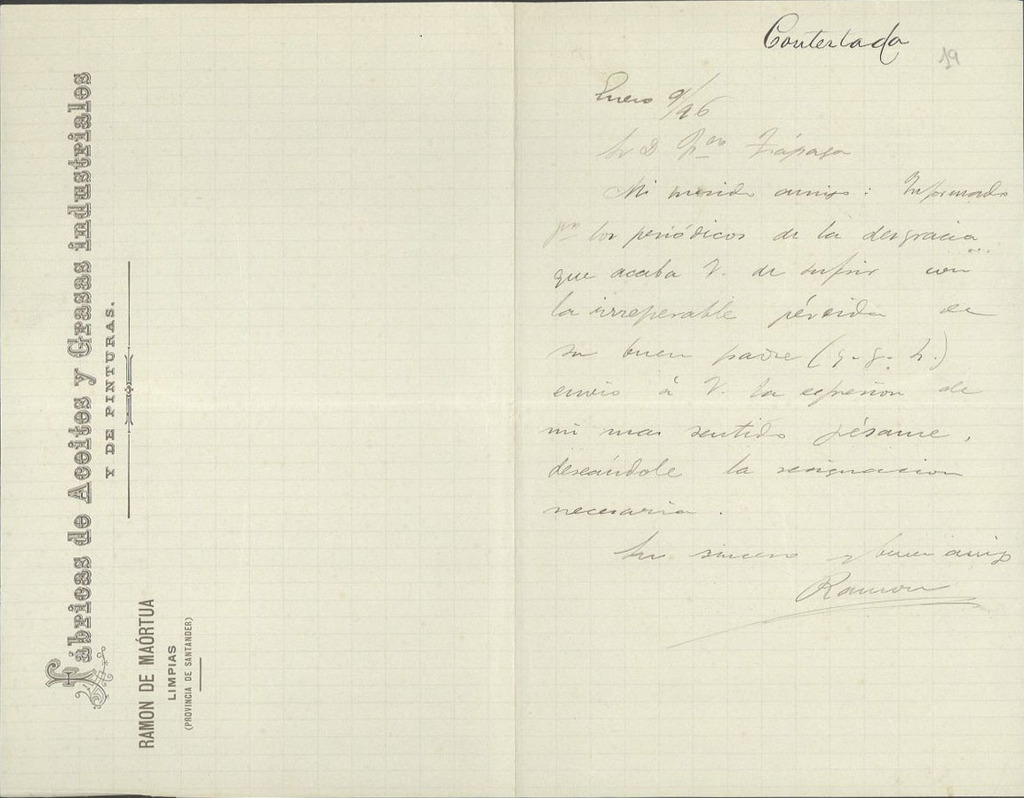 Fábricas de Aceites y Grasas industriales
Y DE PINTURAS.
RAMON DE MAÓRTUA
LIMPIAS
(PROVINCIA DE SANTANDER)
Contestada
19
Enero 9/96
Sr D Trápaga
Mi querido amigo: Informado
por los periódicos de la desgracia
que acaba V. de sufrir con
la irreperable pérdida de
su buen padre (q. g. h.)
envio á V. la espresion de
mi mas sentido pésame,
deseándole la resignacion
necesaria.
Su sincero y buen amigo
Ramon